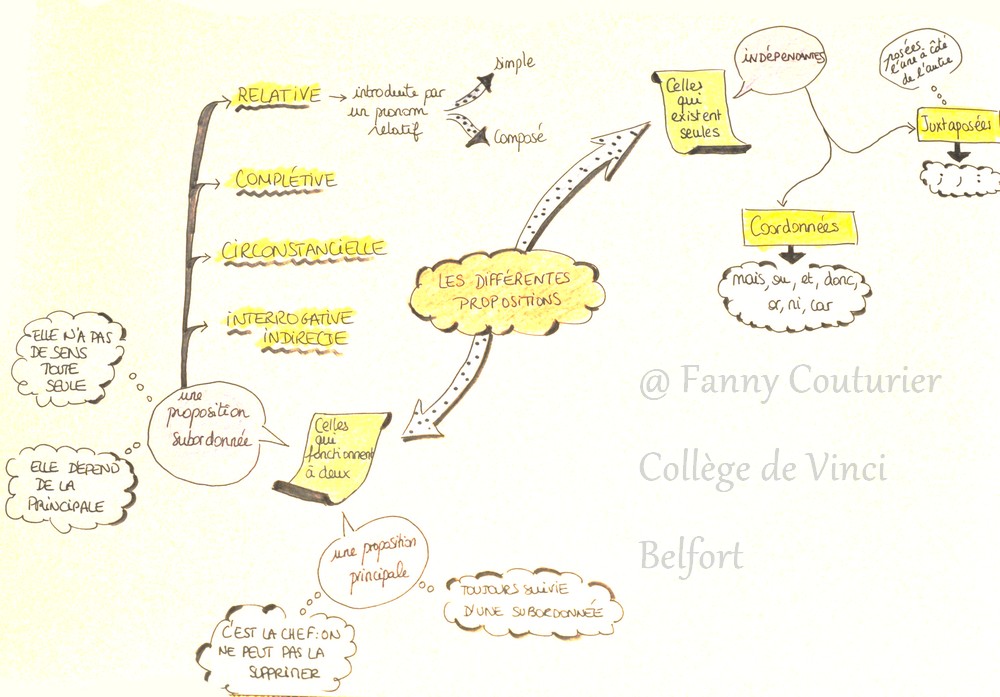 LES DIFFÉRENTES
PROPOSITIONS
Celles
qui
existent
seules
INDÉPENDANTES
posées
l'une à côté
de l'autre
Juxtaposées
; , :
Coordonnées
mais, ou, et, donc,
or, ni, car
Celles
qui
fonctionnent
à deux
une
proposition
subordonnée
ELLE N'A PAS
DE SENS
TOUTE
SEULE
ELLE DÉPEND
DE LA
PRINCIPALE
RELATIVE
introduite par
un pronom
relatif
simple
composé
COMPLÉTIVE
CIRCONSTANCIELLE
INTERROGATIVE
INDIRECTE
une proposition
principale
TOUJOURS SUIVIE
D'UNE SUBORDONNÉE
C'EST LA CHEF : ON
NE PEUT PAS LA
SUPPRIMER
@ Fanny Couturier
Collège de Vinci
Belfort